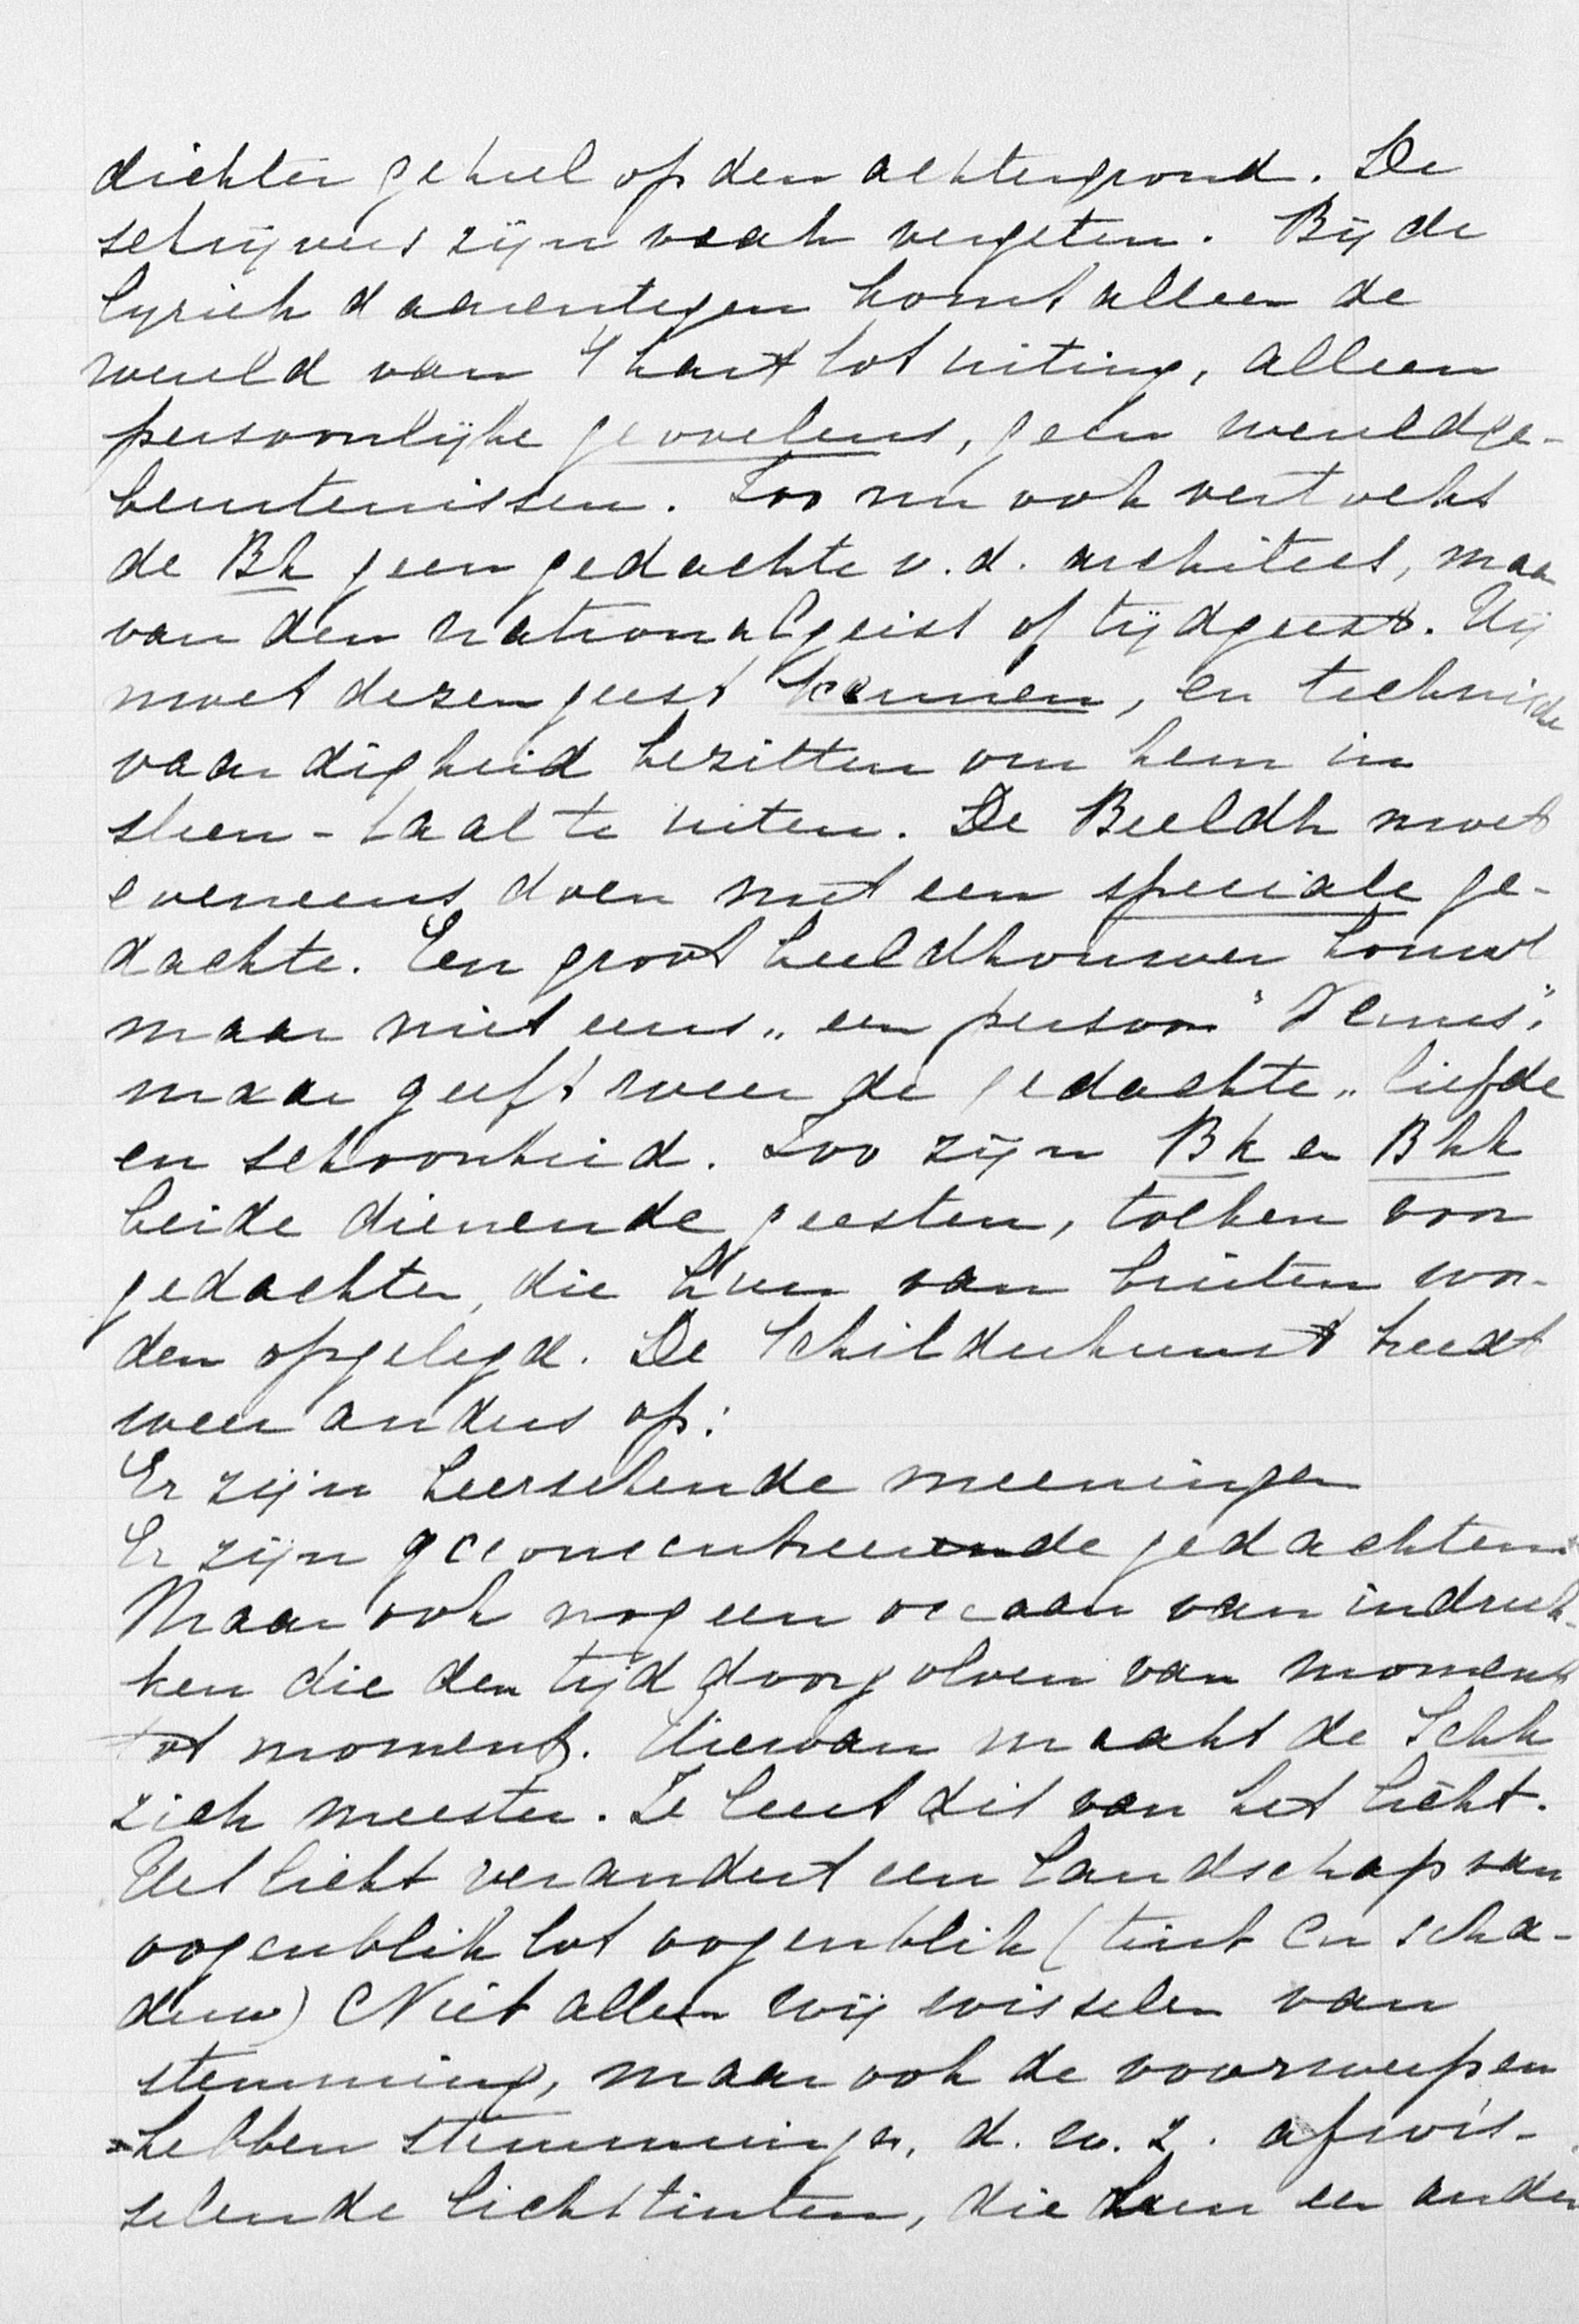 dichter geheel op den achtergrond. De
schrijvers zijn vaak vergeten. Bij de
lyriek daarentegen komt alleen de
wereld van 't hart tot uiting, alleen
persoonlijke gevoelens, geen wereldge-
beurtenissen. Zoo nu ook vertolkt
de Bk geen gedachte v.d. architect, maar
van den nationalgeist of tijdgeest. Hij
moet dezen geest kennen, en technische
vaardigheid bezitten om hem in
steen-taal te uiten. De Beeldh moet
eveneens doen met een speciale ge-
dachte. Een groot beeldhouwer houwt
maar niet eens „een persoon" Venus",
maar geeft weer de gedachte „liefde
en schoonheid. Zoo zijn Bk en Bhk
beide dienende geesten, tolken voor
gedachten, die hun van buiten wor-
den opgelegd. De Schilderkunst treedt
weer anders op:
Er zijn heerschende meeningen
Er zijn geconcentreerde gedachten.
Maar ook nog een oceaan van indruk-
ken die den tijd doorgolven van moment
tot moment. Hiervan maakt de Schk
zich meester. Ze leert dit van het licht.
Het licht verandert een landschap van
oogenblik tot oogenblik (tint en scha-
duw) Niet alleen wij wisselen van
stemming, maar ook de voorwerpen
hebben stemmingen, d.w.z. afwis-
selende lichttinten, die hun een ander